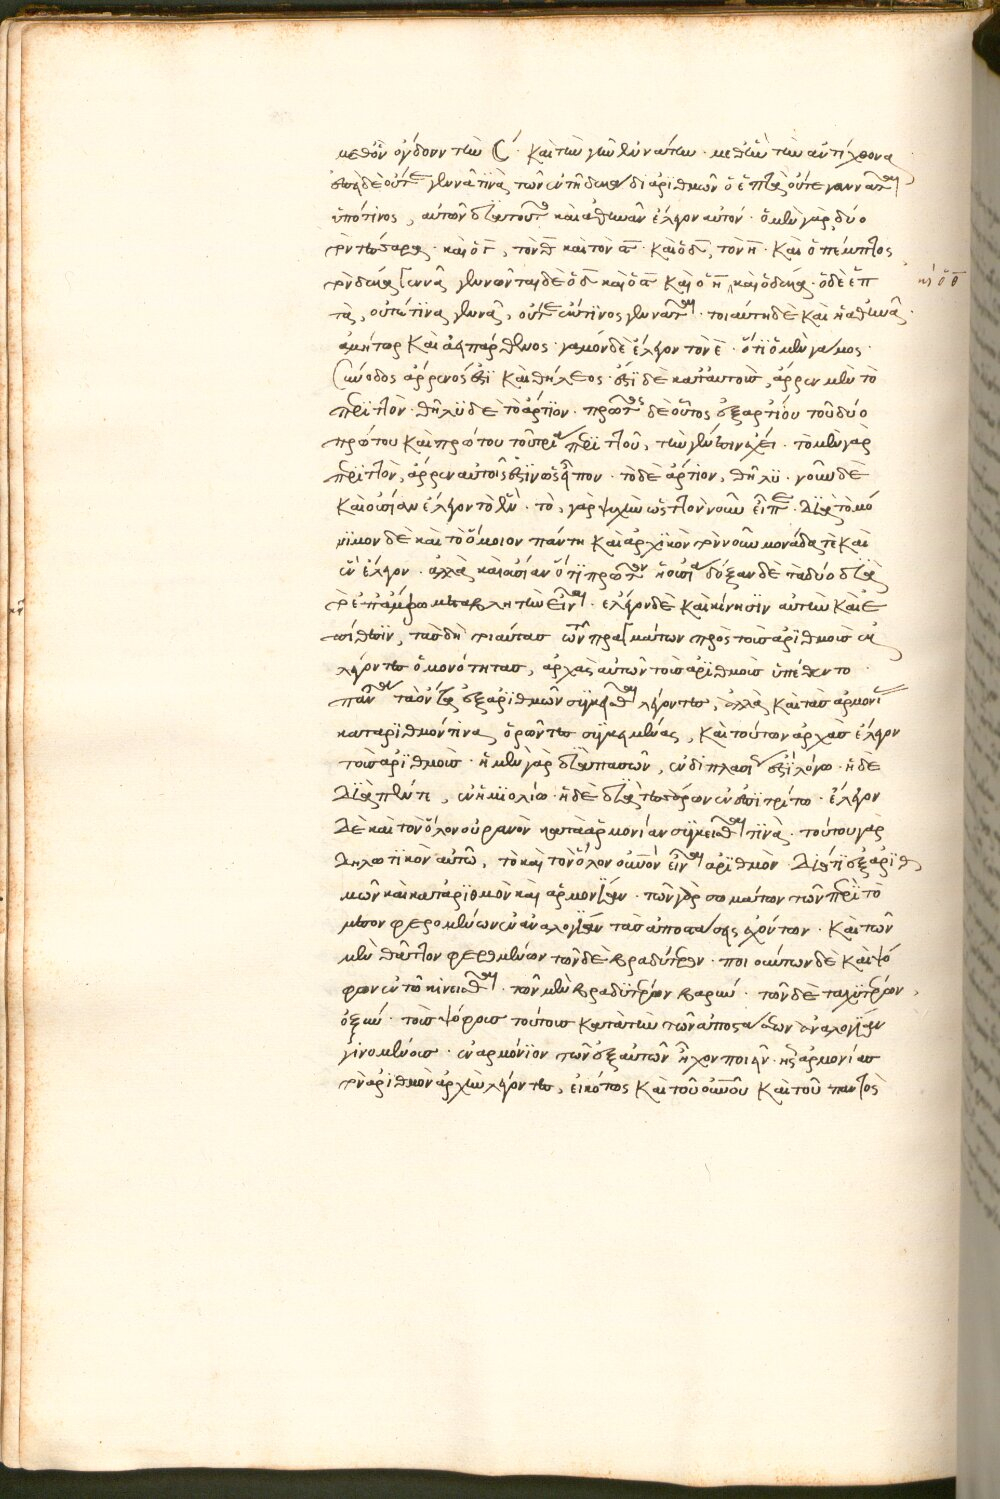 μεθ' ὃν ὀγδόην τὴν ☾ καὶ τὴν γῆν ἐννάτην · μεθ' ἣν τὴν ἀντίχθονα
ἐπεὶ δὲ οὔτε γεννᾶ τινὰ τῶν ἐν τῇ δεκάδι ἀριθμῶν ὁ ἑπτὰ οὔτε γεννᾶται
ὑπό τινος, αὐτῶν διὰ τοῦτο καὶ ἀθηνᾶν ἔλεγον αὐτόν · ὁ μὲν γὰρ δύο
τὸν τέσσαρας · καὶ ὁ γ, τὸν θ καὶ τὸν ς · καὶ ὁ δ, τὸν η · καὶ ὁ πέμπτος
τὸν δέκα γεννᾶ γεννῶνται δὲ ὁ δ καὶ ὁ ς καὶ ὁ η καὶ ὁ δέκα · ὁ δὲ ἑπ
καὶ ὁ θ
τὰ, οὔτε τινὰ γεννᾶ, οὔτε ἔκ τινος γεννᾶται · τοιαύτη δὲ καὶ ἡ ἀθηνᾶ ·
ἀμήτωρ καὶ ἀειπάρθενος · γάμον δὲ ἔλεγον τὸν ε · ὅτι ὁ μὲν γάμος ·
σύνοδος ἄρρενός ἐστι καὶ θήλεος · ἔστι δὲ κατ' αὐτοὺς, ἄρρεν μὲν τὸ
περιττὸν · θῆλυ δὲ τὸ ἄρτιον · πρῶτος δὲ οὗτος ἐξ ἀρτίου τοῦ δύο
πρώτου καὶ πρώτου τοῦ τρία περιττοῦ, τὴν γένεσιν ἔχει · τὸ μὲν γὰρ
περιττὸν, ἄρρεν αὐτοῖς ἐστιν ὡς εἶπον · τὸ δὲ ἄρτιον, θῆλυ · νοῦν δὲ
καὶ οὐσίαν ἔλεγον τὸ ἕν · τὸ, γὰρ ψυχὴν ὡς τὸν νοῦν εἶπε · διὰ τὸ μό
νιμον δὲ καὶ τὸ ὅμοιον πάντη καὶ ἀρχικὸν τὸν νοῦν μονάδα τὲ καὶ
ἓν ἔλεγον · ἀλλὰ καὶ οὐσίαν ὅτι πρῶτον ἡ οὐσία δόξαν δὲ τὰ δύο διὰ
τὸ ἐπ' ἄμφω μεταβλητὴν εἶναι · ἔλεγον δὲ καὶ κίνησιν αὐτὴν καὶ ἐ
πίθεσιν, τὰς δὴ τοιαύτας τῶν πραγμάτων πρὸς τοὺς ἀριθμοὺς ἐκ
λέγοντες ὁμοιότητας, ἀρχὰς αὐτῶν τοὺς ἀριθμοὺς ὑπέθεντο ·
πάντα τὰ ὄντα ἐξ ἀριθμῶν συγκεῖσθαι λέγοντες, ἀλλὰ καὶ τὰς ἁρμονίας
κατ' ἀριθμόν τινα, ὁρῶντες συγκειμένας, καὶ τούτων ἀρχὰς ἔλεγον
τοὺς ἀριθμοὺς · ἡ μὲν γὰρ διὰ πασῶν, ἐν διπλασίῳ ἐστὶ λόγῳ · ἡ δὲ
διὰ πέντε, ἐν ἡμιολίῳ · ἡ δὲ διὰ τεσσάρων ἐν ἐπιτρίτῳ · ἔλεγον
δὲ καὶ τὸν ὅλον οὐρανὸν κατὰ ἁρμονίαν συγκεῖσθαι τινὰ · τούτου γὰρ
δηλωτικὸν αὐτῷ, τὸ καὶ τὸν ὅλον οὐνὸν εἶναι ἀριθμὸν · διότι ἐξ ἀριθ
μῶν καὶ κατ' ἀριθμὸν καὶ ἁρμονίαν · τῶν γὰρ σωμάτων τῶν περὶ τὸ
μέσον φερομένων ἐν ἀναλογίᾳ τὰς ἀποστάσεις ἐχόντων · καὶ τῶν
μὲν θᾶττον φερομένων τῶν δὲ βραδύτερον · ποιούντων δὲ καὶ ψό
φον ἐν τῷ κινεῖσθαι · τῶν μὲν βραδυτέρων βαρύν · τῶν δὲ ταχυτέρων,
ὀξύν · τοὺς ψόφους τούτους κατὰ τὴν τῶν ἀποστάσεων ἀναλογίαν
γινομένους · ἐναρμόνιον τὸν ἐξ αὐτῶν ἦχον ποιεῖν · ἧς ἁρμονίας
τὸν ἀριθμὸν ἀρχὴν λέγοντες, εἰκότως καὶ τοῦ οὐνοῦ καὶ τοῦ παντὸς